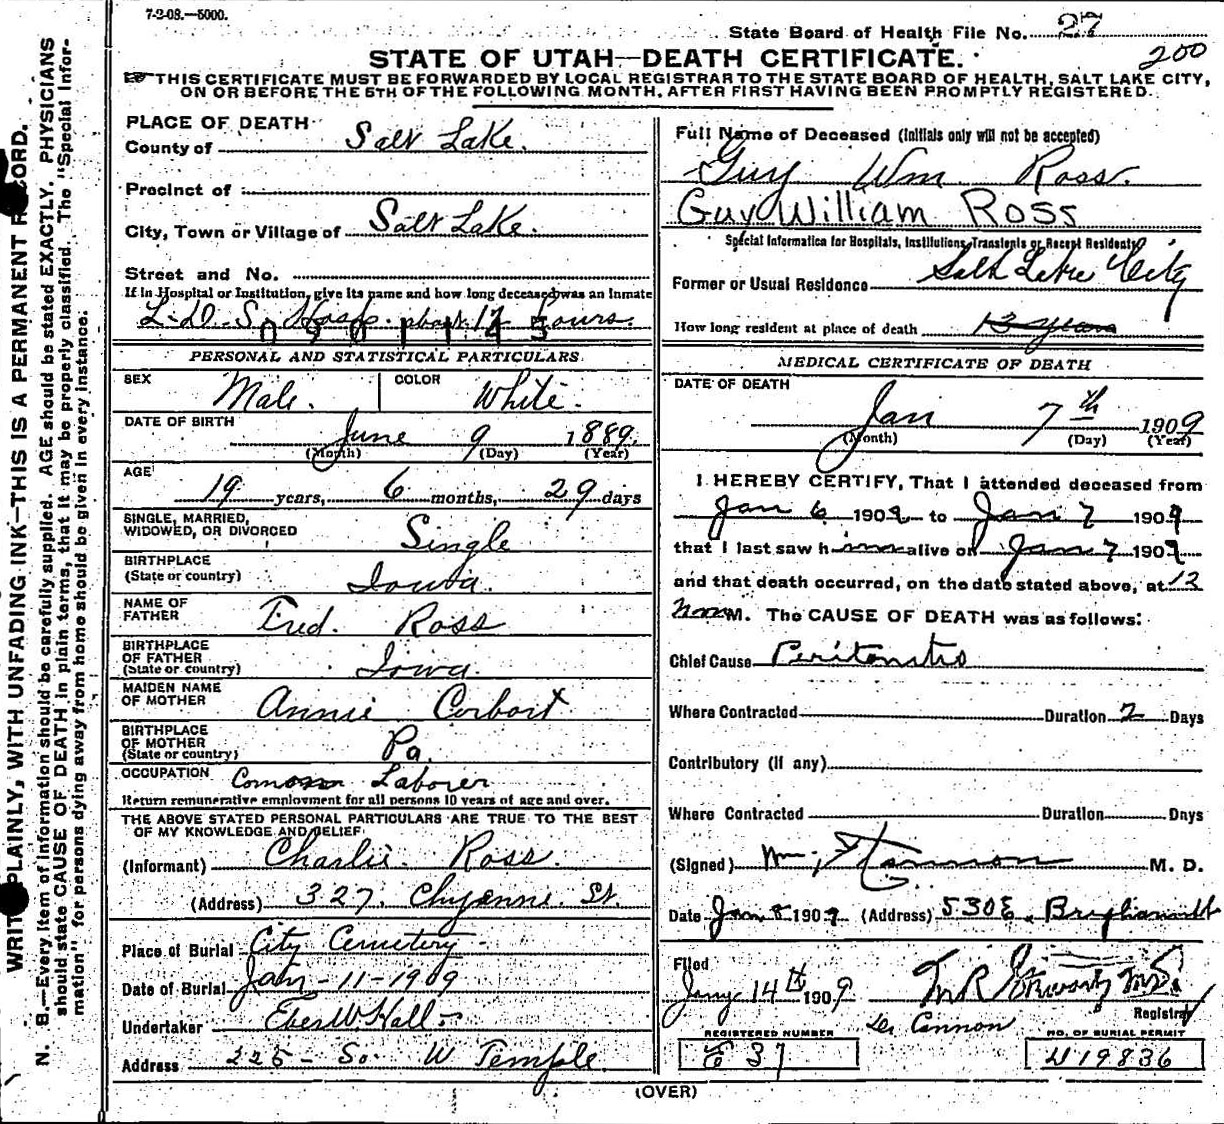 7-2-08.—5000.
State Board of Health File No. 27
200
STATE OF UTAH—DEATH CERTIFICATE.
THIS CERTIFICATE MUST BE FORWARDED BY LOCAL REGISTRAR TO THE STATE BOARD OF HEALTH, SALT LAKE CITY,
ON OR BEFORE THE 5TH OF THE FOLLOWING MONTH, AFTER FIRST HAVING BEEN PROMPTLY REGISTERED.
WRITE PLAINLY, WITH UNFADING INK—THIS IS A PERMANENT RECORD.
N. B.—Every item of information should be carefully supplied. AGE should be stated EXACTLY. PHYSICIANS
should state CAUSE OF DEATH in plain terms, that it may be properly classified. The "Special Infor-
mation" for persons dying away from home should be given in every instance.
PLACE OF DEATH
County of Salt Lake.
Precinct of
City, Town or Village of Salt Lake.
Street and No.
If in Hospital or Institution, give its name and how long deceased was an Inmate
L. D. S. Hosp. about 12 hours.
0901145
PERSONAL AND STATISTICAL PARTICULARS.
SEX Male. COLOR White.
DATE OF BIRTH June 9 1889.
(Month) (Day) (Year)
AGE 19 years, 6 months, 29 days
SINGLE, MARRIED,
WIDOWED, OR DIVORCED Single
BIRTHPLACE
(State or country) Iowa.
NAME OF
FATHER Fred. Ross
BIRTHPLACE
OF FATHER
(State or country) Iowa.
MAIDEN NAME
OF MOTHER Annie Corbort
BIRTHPLACE
OF MOTHER
(State or country) Pa.
OCCUPATION Common Laborer
Return remunerative employment for all persons 10 years of age and over.
THE ABOVE STATED PERSONAL PARTICULARS ARE TRUE TO THE BEST
OF MY KNOWLEDGE AND BELIEF
(Informant) Charlie Ross.
(Address) 327. Chyenne St.
Place of Burial City Cemetery-
Date of Burial Jan-11-1909
Undertaker Eber W. Hall
Address 225- So. W Temple.
Full Name of Deceased (Initials only will not be accepted)
Guy Wm Ross.
Guy William Ross
Special Information for Hospitals, Institutions, Transients or Recent Residents
Former or Usual Residence Salt Lake City
How long resident at place of death 13 years
MEDICAL CERTIFICATE OF DEATH
DATE OF DEATH
Jan 7th 1909
(Month) (Day) (Year)
I HEREBY CERTIFY, That I attended deceased from
Jan 6 1909 to Jan 7 1909
that I last saw him alive on Jan 7 1909
and that death occurred, on the date stated above, at 12
noon M. The CAUSE OF DEATH was as follows:
Chief Cause Peritonitis
Where Contracted Duration 2 Days
Contributory (if any)
Where Contracted Duration Days
(Signed) M. D.
Date Jan 8 1909 (Address) 530 E. Brigham st
Filed
Jany 14th 1909
Registrar
Cannon
REGISTERED NUMBER
E 37
NO. OF BURIAL PERMIT
19836
(OVER)